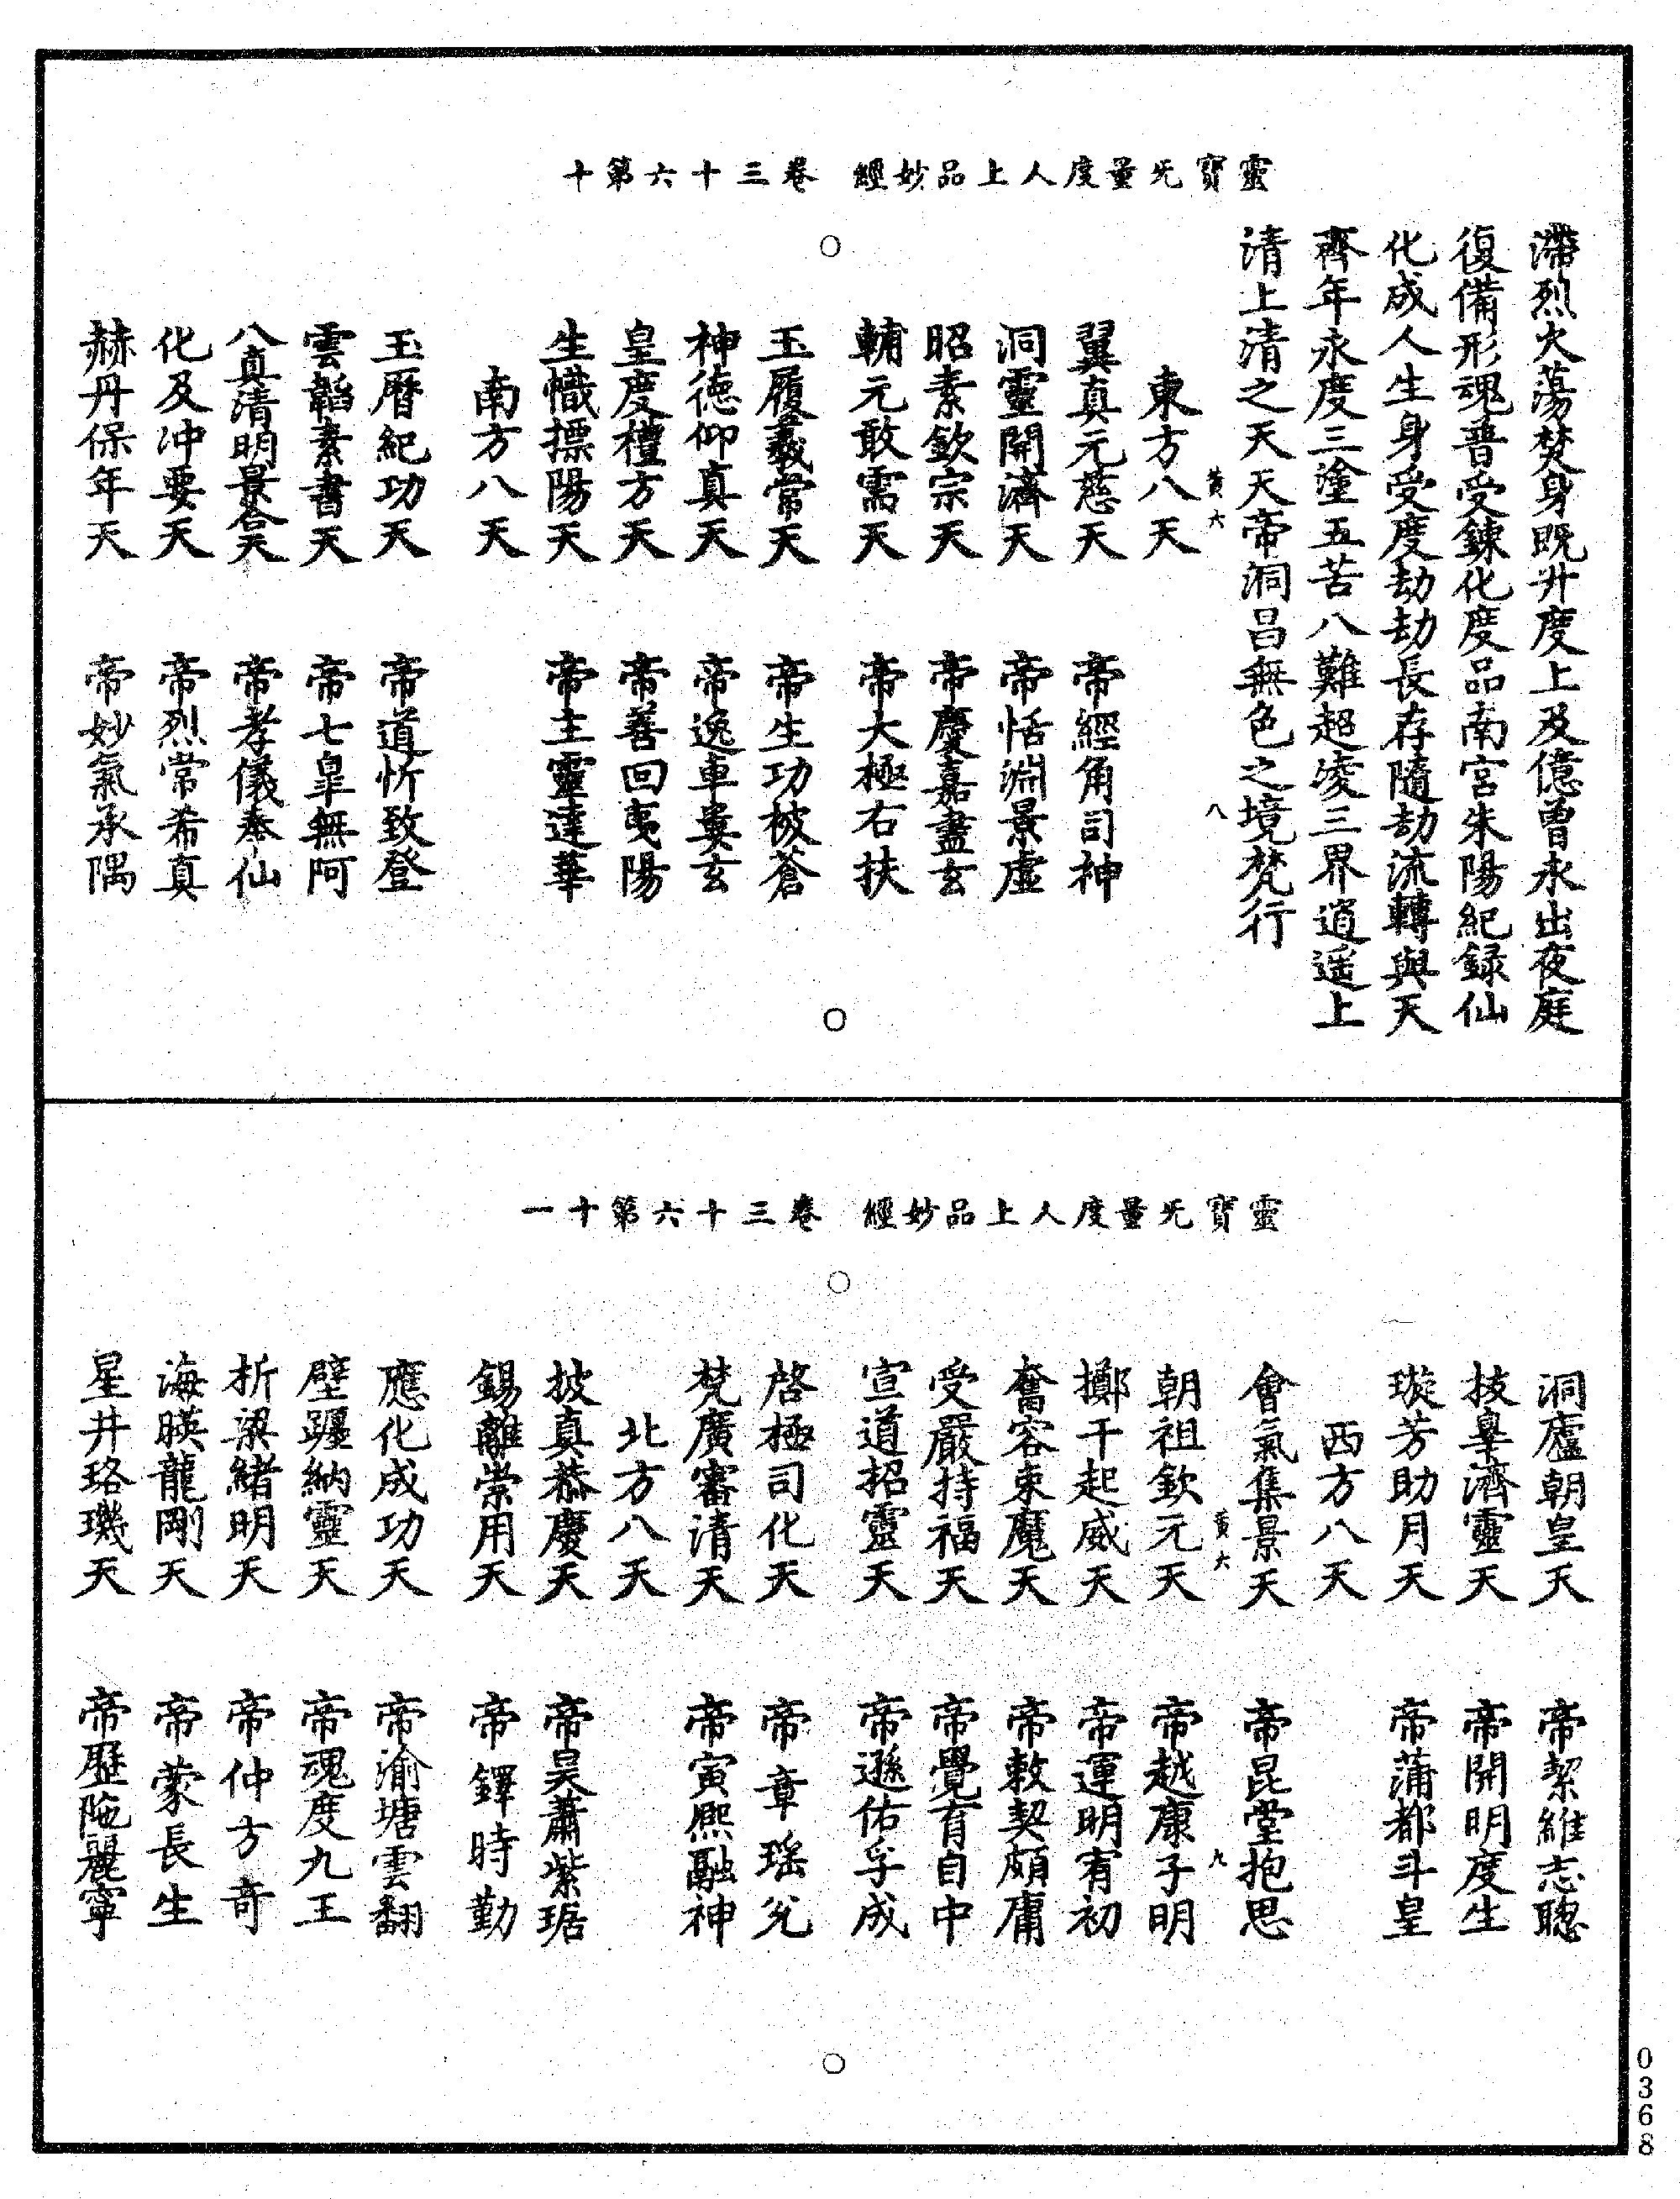 靈寶无量度人上品妙經 卷三十六第十
滯烈火蕩焚身既升度上及億曾永出夜庭
復備形魂普受鍊化度品南宮朱陽紀録仙
化成人生身受度劫劫長存隨劫流轉與天
齊年永度三塗五苦八難超凌三界逍遥上
清上清之天天帝洞昌無色之境梵行
黄六 八
東方八天
翼真元慈天 帝經角司神
洞靈開濟天 帝恬淵景虛
昭素欽宗天 帝慶嘉盡玄
輔元敢需天 帝大極右扶
玉履羲常天 帝生功披蒼
神德仰真天 帝逸車婁玄
皇度禮方天 帝善回夷陽
生幟摽陽天 帝主靈達華
南方八天
玉曆紀功天 帝道忻致登
雲韜素書天 帝七皐無阿
八真清明景合天 帝孝儀奉仙
化及冲要天 帝烈常希真
赫丹保年天 帝妙氣承隅
靈寶无量度人上品妙經 卷三十六第十一
洞廬朝皇天 帝絜維志聦
技臯濟靈天 帝開明度生
璇芳助月天 帝蒲都斗皇
西方八天
會氣集景天 帝昆堂抱思
黄六 九
朝祖欽元天 帝越康子明
擲干起威天 帝運明宥初
奮容束魔天 帝敕契頗庸
受嚴持福天 帝覺育自中
宣道招靈天 帝遜佑孚成
啓極司化天 帝章瑤兊
梵廣審清天 帝寅熈融神
北方八天
披真恭慶天 帝吴蕭紫琚
錫離崇用天 帝鐸時勤
應化成功天 帝渝塘雲翻
壁躔納靈天 帝魂度九王
析梁緒明天 帝仲方奇
海暎龍剛天 帝蒙長生
星井珞璣天 帝歷陁麗寧
0368